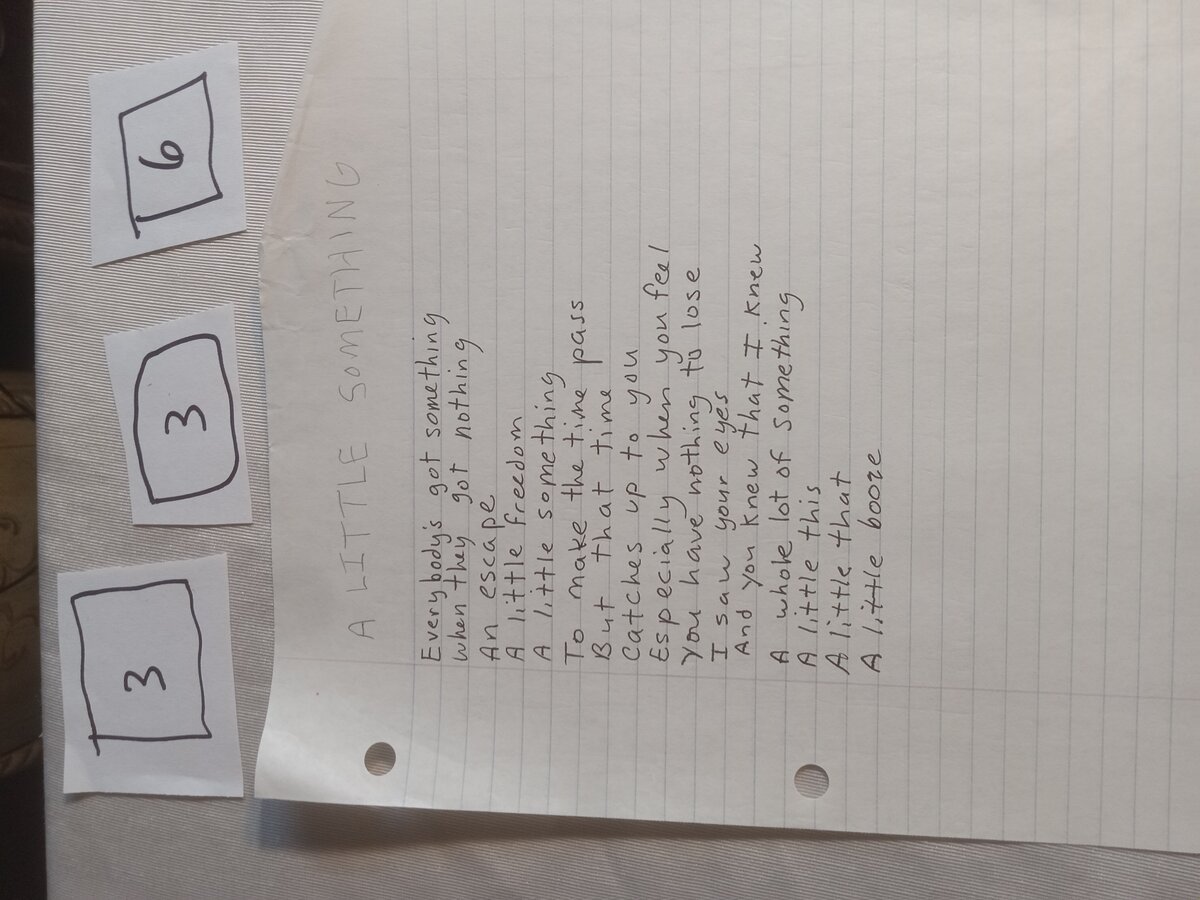 3
3
6
A LITTLE SOMETHING
Everybody's got something
When they got nothing
An escape
A little freedom
A little something
To make the time pass
But that time
Catches up to you
Especially when you feel
You have nothing to lose
I saw your eyes
And you knew that I knew
A whole lot of something
A little this
A little that
A little booze